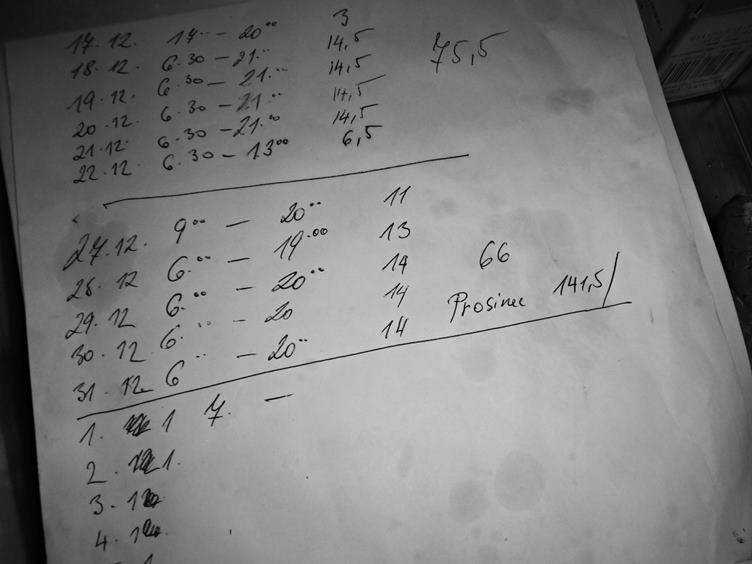 17.12. 17⁰⁰ - 20⁰⁰ 3
18.12. 6.30 - 21.⁰⁰ 14,5
19.12. 6.30 - 21.⁰⁰ 14,5 75,5
20.12. 6.30 - 21.⁰⁰ 14,5
21.12. 6.30 - 21.⁰⁰ 14,5
22.12. 6.30 - 13⁰⁰ 6,5
27.12. 9⁰⁰ - 20⁰⁰ 11
28.12 6.⁰⁰ - 19.⁰⁰ 13
29.12 6.⁰⁰ - 20⁰⁰ 14 66
30.12 6.⁰⁰ - 20 14 Prosinec 141,5/
31.12 6⁰⁰ - 20⁰⁰ 14
1. 1 7. -
2. 1.
3. 1
4. 1